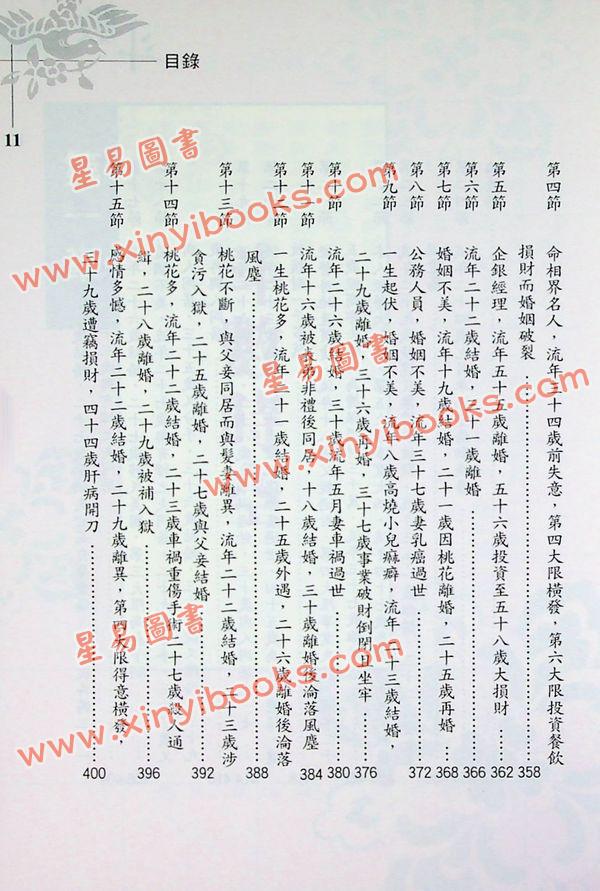 目錄
11
第四節 命相界名人，流年三十四歲前失意，第四大限橫發，第六大限投資餐飲
損財而婚姻破裂……358
第五節 企銀經理，流年五十五歲離婚，五十六歲投資至五十八歲大損財……362
第六節 流年二十二歲結婚，三十一歲離婚……366
第七節 婚姻不美，流年十九歲結婚，二十一歲因桃花離婚，二十五歲再婚……368
第八節 公務人員，婚姻不美，流年三十七歲妻乳癌過世……372
第九節 一生起伏，婚姻不美，流年八歲高燒小兒痲癖，流年二十三歲結婚，
二十九歲離婚，三十六歲再婚，三十七歲事業破財倒閉且坐牢……376
第十節 流年二十六歲結婚，三十歲流年五月妻車禍過世……380
第十一節 流年十六歲被表弟非禮後同居，十八歲結婚，三十歲離婚後淪落風塵……384
第十二節 一生桃花多，流年二十一歲結婚，二十五歲外遇，二十六歲離婚後淪落
風塵……388
第十三節 桃花不斷，與父妾同居而與髮妻離異，流年二十二歲結婚，二十三歲涉
貪污入獄，二十五歲離婚，二十七歲與父妾結婚……392
第十四節 桃花多，流年二十二歲結婚，二十三歲車禍重傷手術二十七歲殺人通
緝，二十八歲離婚，二十九歲被補入獄……396
第十五節 感情多憾，流年二十二歲結婚，二十九歲離異，第四大限得意橫發，
三十九歲遭竊損財，四十四歲肝病開刀……400
星易圖書
www.xinyibooks.com
星易圖書
www.xinyibooks.com
星易圖書
www.xinyibooks.com